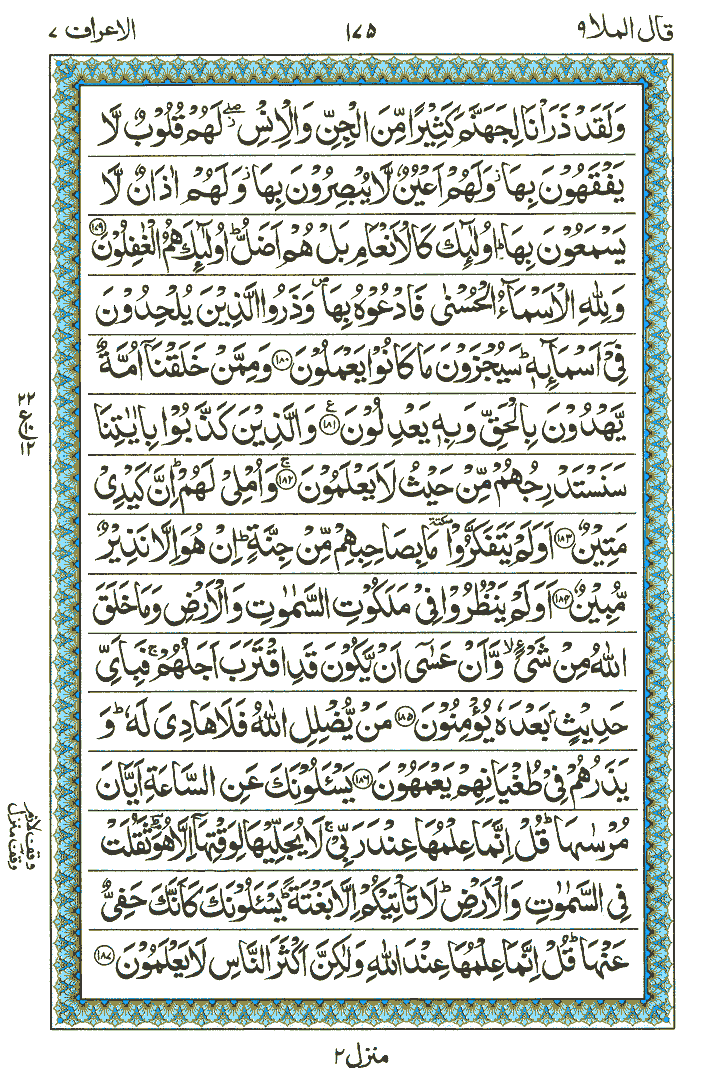 قال الملا ۹
۱۷۵
الاعراف ۷
وَلَقَدْ ذَرَاْنَا لِجَهَنَّمَ كَثِيْرًا مِّنَ الْجِنِّ وَالْاِنْسِ ۖ لَهُمْ قُلُوْبٌ لَّا
يَفْقَهُوْنَ بِهَا ز وَلَهُمْ اَعْيُنٌ لَّا يُبْصِرُوْنَ بِهَا ز وَلَهُمْ اٰذَانٌ لَّا
يَسْمَعُوْنَ بِهَا ؕ اُولٰٓئِكَ كَالْاَنْعَامِ بَلْ هُمْ اَضَلُّ ؕ اُولٰٓئِكَ هُمُ الْغٰفِلُوْنَ ۱۷۹
وَ لِلّٰهِ الْاَسْمَآءُ الْحُسْنٰى فَادْعُوْهُ بِهَا ص وَذَرُوا الَّذِيْنَ يُلْحِدُوْنَ
فِيْۤ اَسْمَآئِهٖ ؕ سَيُجْزَوْنَ مَا كَانُوْا يَعْمَلُوْنَ ۱۸۰ وَمِمَّنْ خَلَقْنَاۤ اُمَّةٌ
يَّهْدُوْنَ بِالْحَقِّ وَبِهٖ يَعْدِلُوْنَ ۱۸۱ ع وَالَّذِيْنَ كَذَّبُوْا بِاٰيٰتِنَا
سَنَسْتَدْرِجُهُمْ مِّنْ حَيْثُ لَا يَعْلَمُوْنَ ۱۸۲ ۚ وَاُمْلِيْ لَهُمْ ؕ اِنَّ كَيْدِيْ
مَتِيْنٌ ۱۸۳ اَوَلَمْ يَتَفَكَّرُوْا سكتة مَا بِصَاحِبِهِمْ مِّنْ جِنَّةٍ ؕ اِنْ هُوَ اِلَّا نَذِيْرٌ
مُّبِيْنٌ ۱۸۴ اَوَلَمْ يَنْظُرُوْا فِيْ مَلَكُوْتِ السَّمٰوٰتِ وَالْاَرْضِ وَمَا خَلَقَ
اللّٰهُ مِنْ شَيْءٍ ۙ وَّاَنْ عَسٰۤى اَنْ يَّكُوْنَ قَدِ اقْتَرَبَ اَجَلُهُمْ ۚ فَبِاَيِّ
حَدِيْثٍۭ بَعْدَهٗ يُؤْمِنُوْنَ ۱۸۵ مَنْ يُّضْلِلِ اللّٰهُ فَلَا هَادِيَ لَهٗ ؕ وَ
يَذَرُهُمْ فِيْ طُغْيَانِهِمْ يَعْمَهُوْنَ ۱۸۶ يَسْـَٔلُوْنَكَ عَنِ السَّاعَةِ اَيَّانَ
مُرْسٰىهَا ؕ قُلْ اِنَّمَا عِلْمُهَا عِنْدَ رَبِّيْ ۚ لَا يُجَلِّيْهَا لِوَقْتِهَاۤ اِلَّا هُوَ ؔؕ ثَقُلَتْ
فِي السَّمٰوٰتِ وَالْاَرْضِ ؕ لَا تَاْتِيْكُمْ اِلَّا بَغْتَةً ؕ يَسْـَٔلُوْنَكَ كَاَنَّكَ حَفِيٌّ
عَنْهَا ؕ قُلْ اِنَّمَا عِلْمُهَا عِنْدَ اللّٰهِ وَلٰكِنَّ اَكْثَرَ النَّاسِ لَا يَعْلَمُوْنَ ۱۸۷
۲۲
ع ۱۰
۱۲
وقف لازم
وقف منزل
منزل ۲